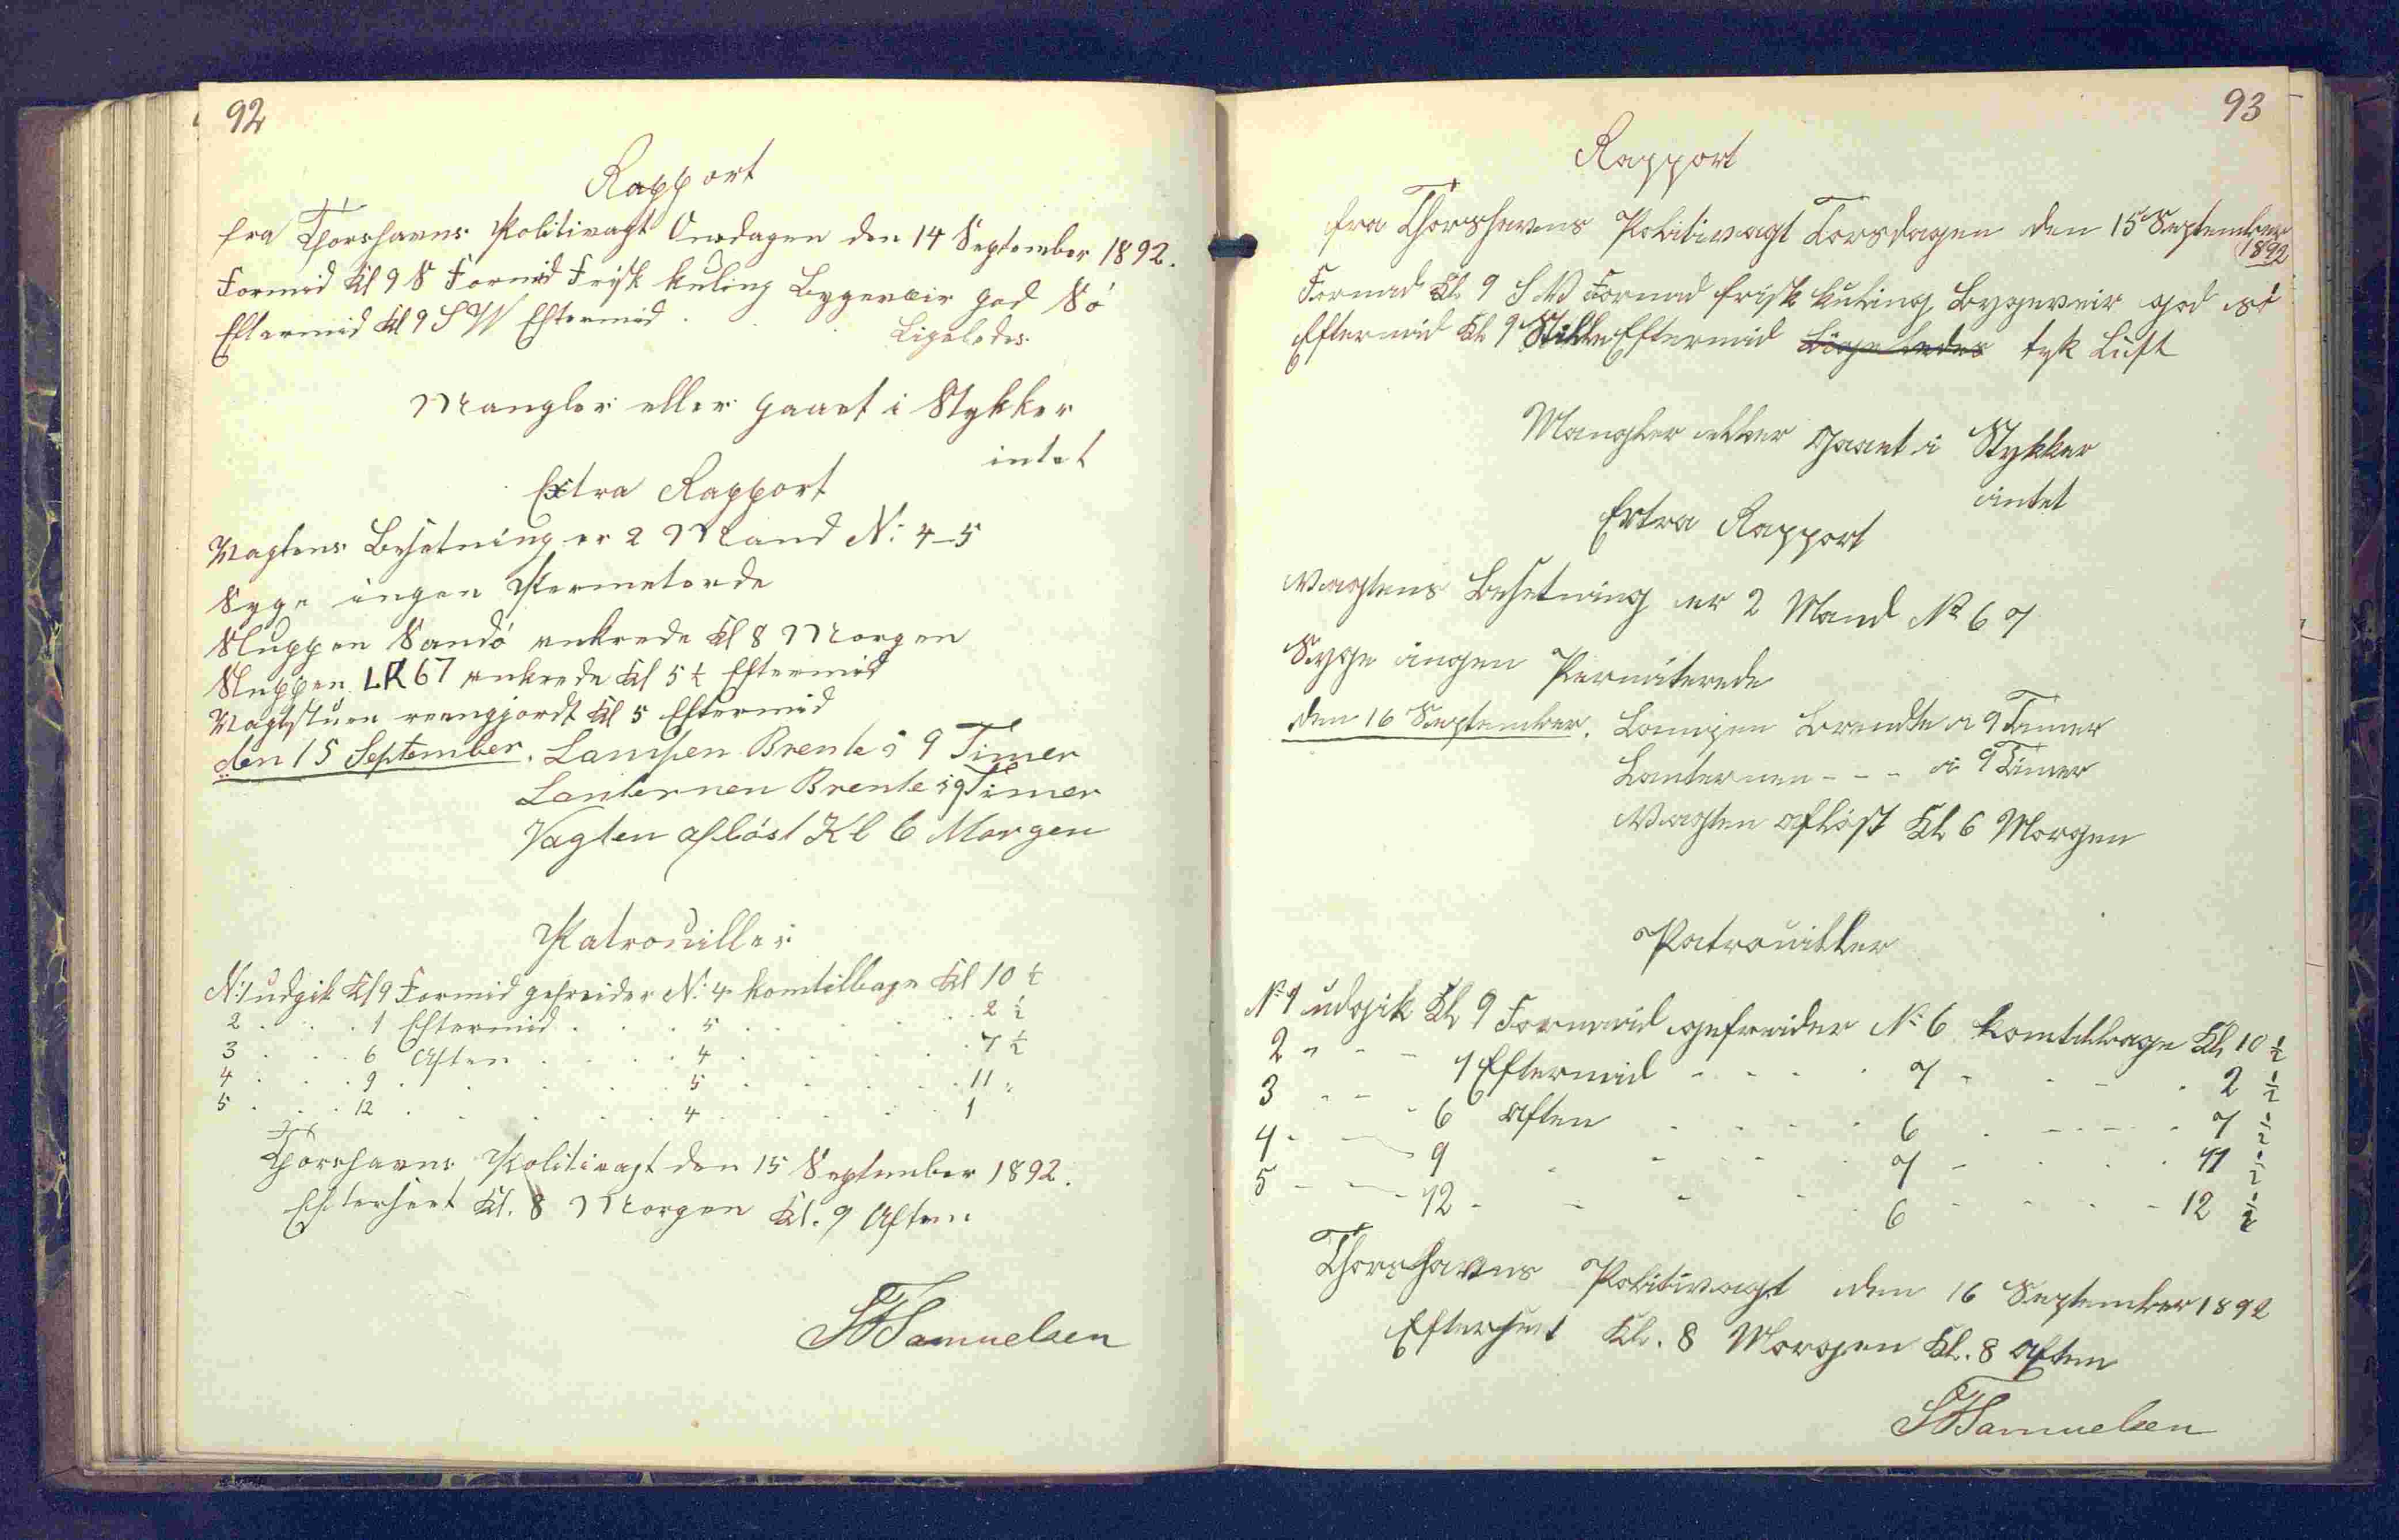 92
Rapport
fra Thorshavns Politivagt Onsdagen den 14 September 1892.
Formid Kl 9 S Formid Frisk kuling Bygeveir god Sö
Eftermid Kl 9 SW Eftermid . . . Ligeledes
Mangler eller gaaet i Stykker
intet
Extra Rapport
Vagtens Besetning er 2 Mand N: 4-5
Syge ingen Permeterede
Sluppen Sandö ankrede Kl 8 Morgen
Sluppen LR 67 ankrede Kl 5 ½ Eftermid
Vagtstuen reengjordt Kl 5 Eftermid
den 15 September. Lampen Brente i 9 Timer
Lanternen Brente i 9 Timer
Vagten aflöst Kl 6 Morgen
Patrouiller
N: 1 udgik Kl 9 Formid gefreider N: 4 kom tilbage Kl 10 ½
2 . . . 1 Eftermid . . . 5 . . . 2 ½
3 . . . 6 Aften . . . 4 . . . 7 ½
4 . . . 9 . . . 5 . . . 11 "
5 . . . 12 . . . 4 . . . 1
Thorshavns Politivagt den 15 September 1892.
Efterseet Kl. 8 Morgen Kl. 9 Aften
Samuelsen
93
Rapport
fra Thorshavns Politivagt Torsdagen den 15 September
1892
Formad Kl. 9 SW Formad frisk kuling Bygeveir god sö
Eftermid Kl 9 Stille Eftermid Ligeledes tyk Luft
Mangler eller Gaaet i Stykker
intet
Extra Rapport
Vagtens Besetning er 2 Mand No 6 7
Syge ingen Permiterede
den 16 September. Lampen Brendte i 9 Timer
Lanternen - - - i 9 Timer
Vagten aflöst Kl 6 Morgen
Patrouiller
No 1 udgik Kl 9 Formid gefreider No 6 kom tilbage Kl 10 ½
2 " - - 1 Eftermid - - - 7 - - - 2 ½
3 - - - 6 Aften - - - 6 - - - 7 ½
4 - - - 9 - - - 7 - - - 11 ½
5 - - - 12 - - - 6 - - - 12 ½
Thorshavns Politivagt den 16 September 1892
Efterseet Kl. 8 Morgen Kl. 8 Aften
Samuelsen